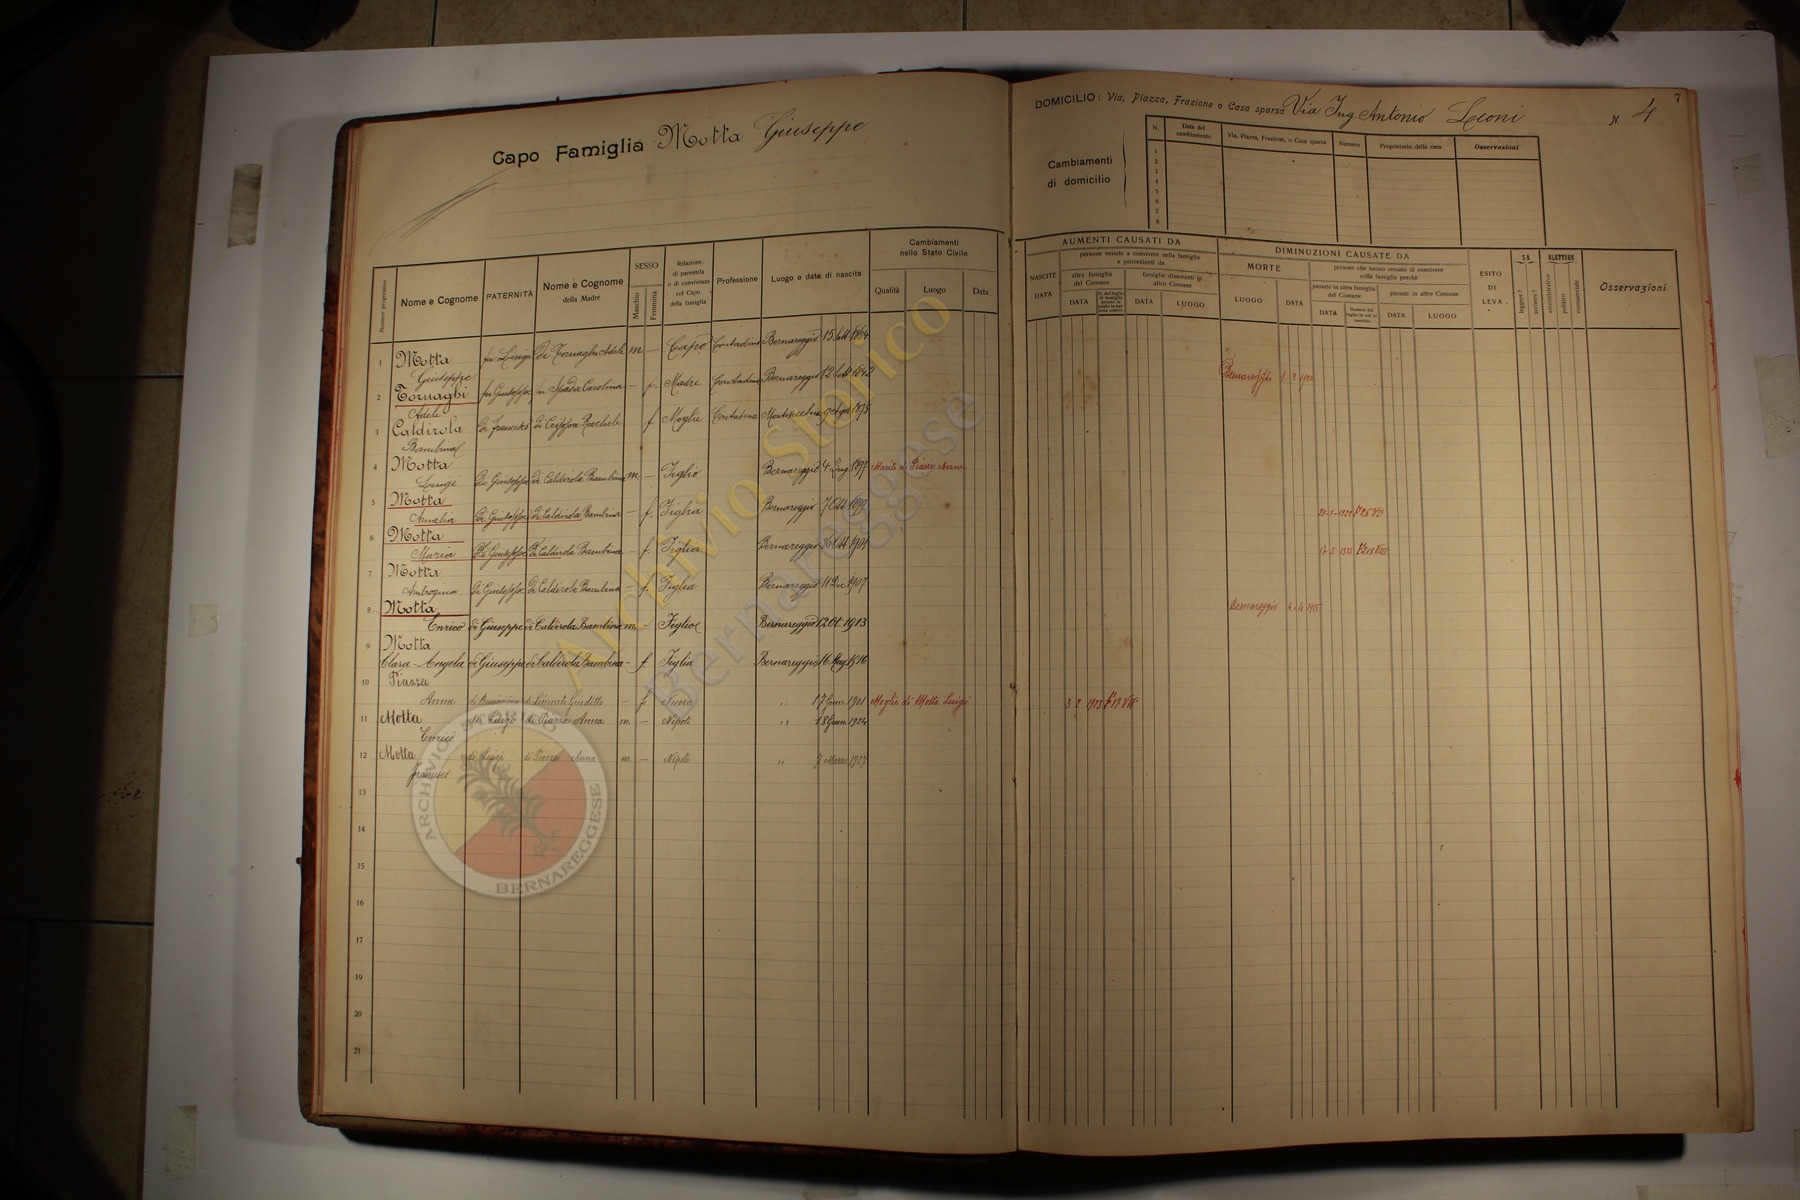 7
Capo Famiglia Motta Giuseppe
DOMICILIO: Via, Piazza, Frazione o Casa sparsa Via Ing Antonio Leoni N. 4
Cambiamenti
di domicilio
N. Data del cambiamento Via, Piazza, Frazione, o Casa sparsa Numero Proprietario della casa Osservazioni
1
2
3
4
5
6
7
8
Numero progressivo
Nome e Cognome
PATERNITÀ
Nome e Cognome
della Madre
SESSO
Maschio
Femmina
Relazione
di parentela
o di convivenza
col Capo
della famiglia
Professione
Luogo e data di nascita
Cambiamenti
nello Stato Civile
Qualità Luogo Data
AUMENTI CAUSATI DA
NASCITE
DATA
persone venute a convivere nella famiglia
e provenienti da
altra famiglia
del Comune
DATA
famiglie dimoranti in
altro Comune
DATA LUOGO
DIMINUZIONI CAUSATE DA
MORTE
LUOGO DATA
persone che hanno cessato di convivere
colla famiglia perchè
passate in altra famiglia
del Comune
DATA
passate in altro Comune
DATA LUOGO
ESITO
DI
LEVA
SA
leggere?
scrivere?
ELETTORE
amministrativo
politico
commerciale
Osservazioni
1 Motta fu Luigi di Tornaghi Adele m — Capo Contadino Bernareggio 15 Sett 1864
Giuseppe
2 Tornaghi fu Giuseppe fu Spada Carolina — f. Madre Contadina Bernareggio 12 Sett 1842 Bernareggio
Adele
3 Caldirola di Francesco di Crippa Rachele f Moglie Contadina 1875
Bambina
4 Motta
Luigi di Giuseppe di Caldirola Bambina m — Figlio Bernareggio 4 1897 Marito di Piazza Anna
5 Motta
Amalia di Giuseppe di Caldirola Bambina — f. Figlia Bernareggio 7 1899
6 Motta
Maria di Giuseppe di Caldirola Bambina — f. Figlia Bernareggio 1901
7 Motta
Ambrogina di Giuseppe di Caldirola Bambina — f. Figlia Bernareggio 11 1907
8 Motta
Enrico di Giuseppe di Caldirola Bambina m. — Figlio Bernareggio 12 Ot. 1913 Bernareggio 4 4 1915
9 Motta
Clara - Angela di Giuseppe di Caldirola Bambina — f. Figlia Bernareggio 16 Mag 1916
10 Piazza
Anna — f Nuora " 17 Genn 1901 Moglie di Motta Luigi 3 2 1923
11 Motta di Luigi di Piazza Anna m. — Nipote " 18 Genn 1924
Enrico
12 Motta di Luigi di Piazza Anna m. — Nipote " 7 Marzo 1927
Francesco
13
14
15
16
17
18
19
20
21
Archivio Storico
Bernareggese
ARCHIVIO STORICO
BERNAREGGESE